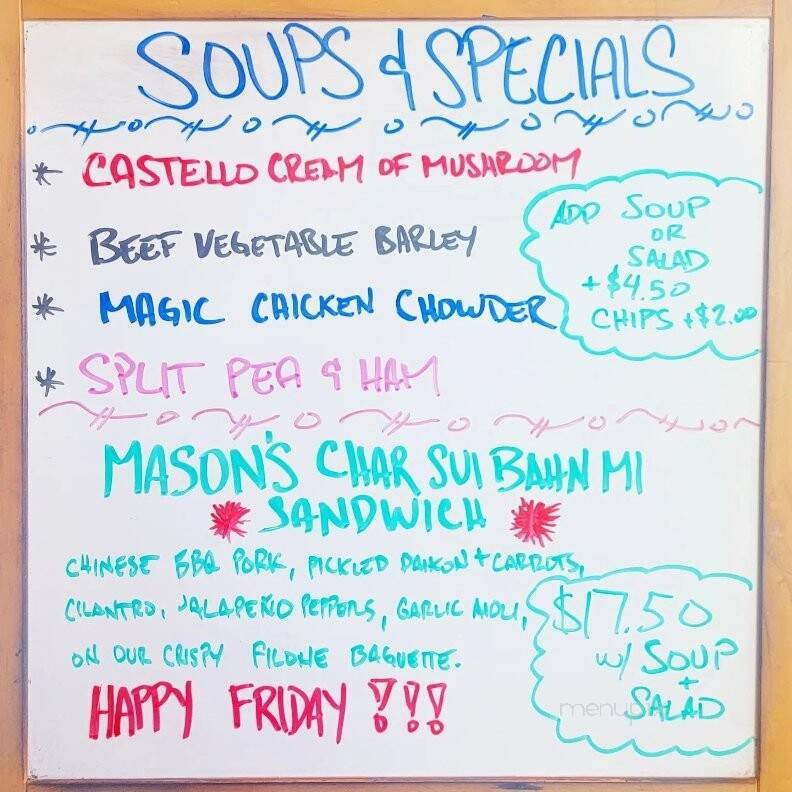 SOUPS & SPECIALS
* CASTELLO CREAM OF MUSHROOM
* BEEF VEGETABLE BARLEY
* MAGIC CHICKEN CHOWDER
* SPLIT PEA & HAM
ADD SOUP
OR
SALAD
+$4.50
CHIPS +$2.00
MASON'S CHAR SUI BAHN MI
SANDWICH
CHINESE BBQ PORK, PICKLED DAIKON + CARROTS,
CILANTRO, JALAPEÑO PEPPERS, GARLIC AIOLI,
ON OUR CRISPY FILONE BAGUETTE.
$17.50
w/ SOUP
+
SALAD
HAPPY FRIDAY !!!